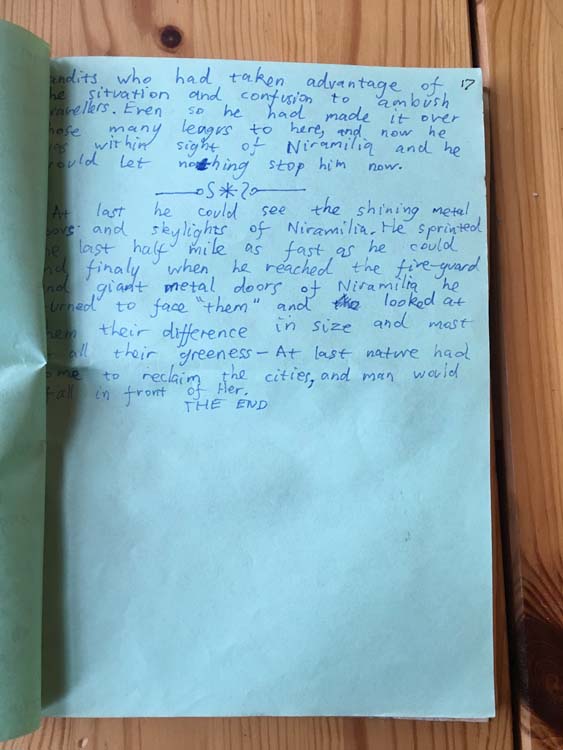 17
andits who had taken advantage of
he situation and confusion to ambush
ravellers. Even so he had made it over
hose many leagus to here, and now he
as within sight of Niramilia and he
ould let nothing stop him now.
At last he could see the shining metal
oors and skylights of Niramilia. He sprinted
he last half mile as fast as he could
nd finaly when he reached the fire-guard
nd giant metal doors of Niramilia he
urned to face "them" and looked at
hem their difference in size and most
f all their greeness - At last nature had
ome to reclaim the cities, and man would
fall in front of Her.
THE END